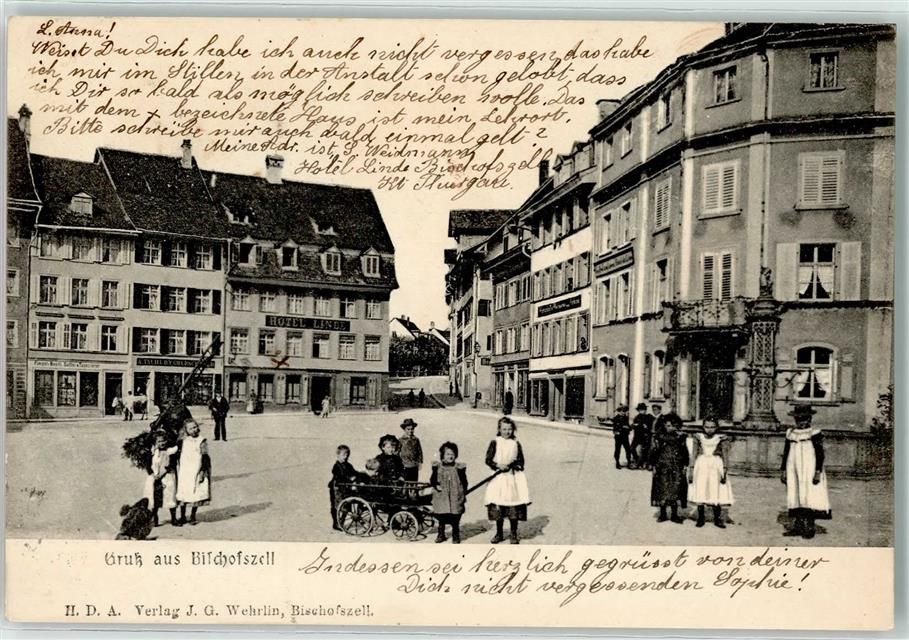 L. Anna!
Weisst Du Dich habe ich auch nicht vergessen, das habe
ich mir im Stillen in der Anstalt schon gelobt, dass
ich Dir so bald als möglich schreiben wolle. Das
mit dem + bezeichnete Haus, ist mein Lehrort.
Bitte schreibe mir auch bald einmal gelt?
Meine Adr. ist, S. Weidmann
Hotel Linde Bischofszell
Kt Thurgau.
HOTEL LINDE
Gruß aus Bischofszell
Indessen sei herzlich gegrüsst von deiner
Dich nicht vergessenden Sophie!
H. D. A. Verlag J. G. Wehrlin, Bischofszell.